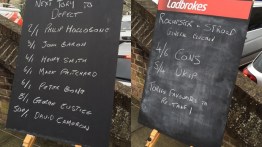 NEXT TORY TO
DEFECT
2/1 PHILIP HOLLOBONE
3/1 JOHN BARON
4/1 HENRY SMITH
4/1 MARK PRITCHARD
6/1 PETER BONE
8/1 GEORGE EUSTICE
DAVID CAMERON
Ladbrokes
ROCHESTER & STROOD
4/6 CONS
5/4 UKIP
TORIES FAVOURITES IN